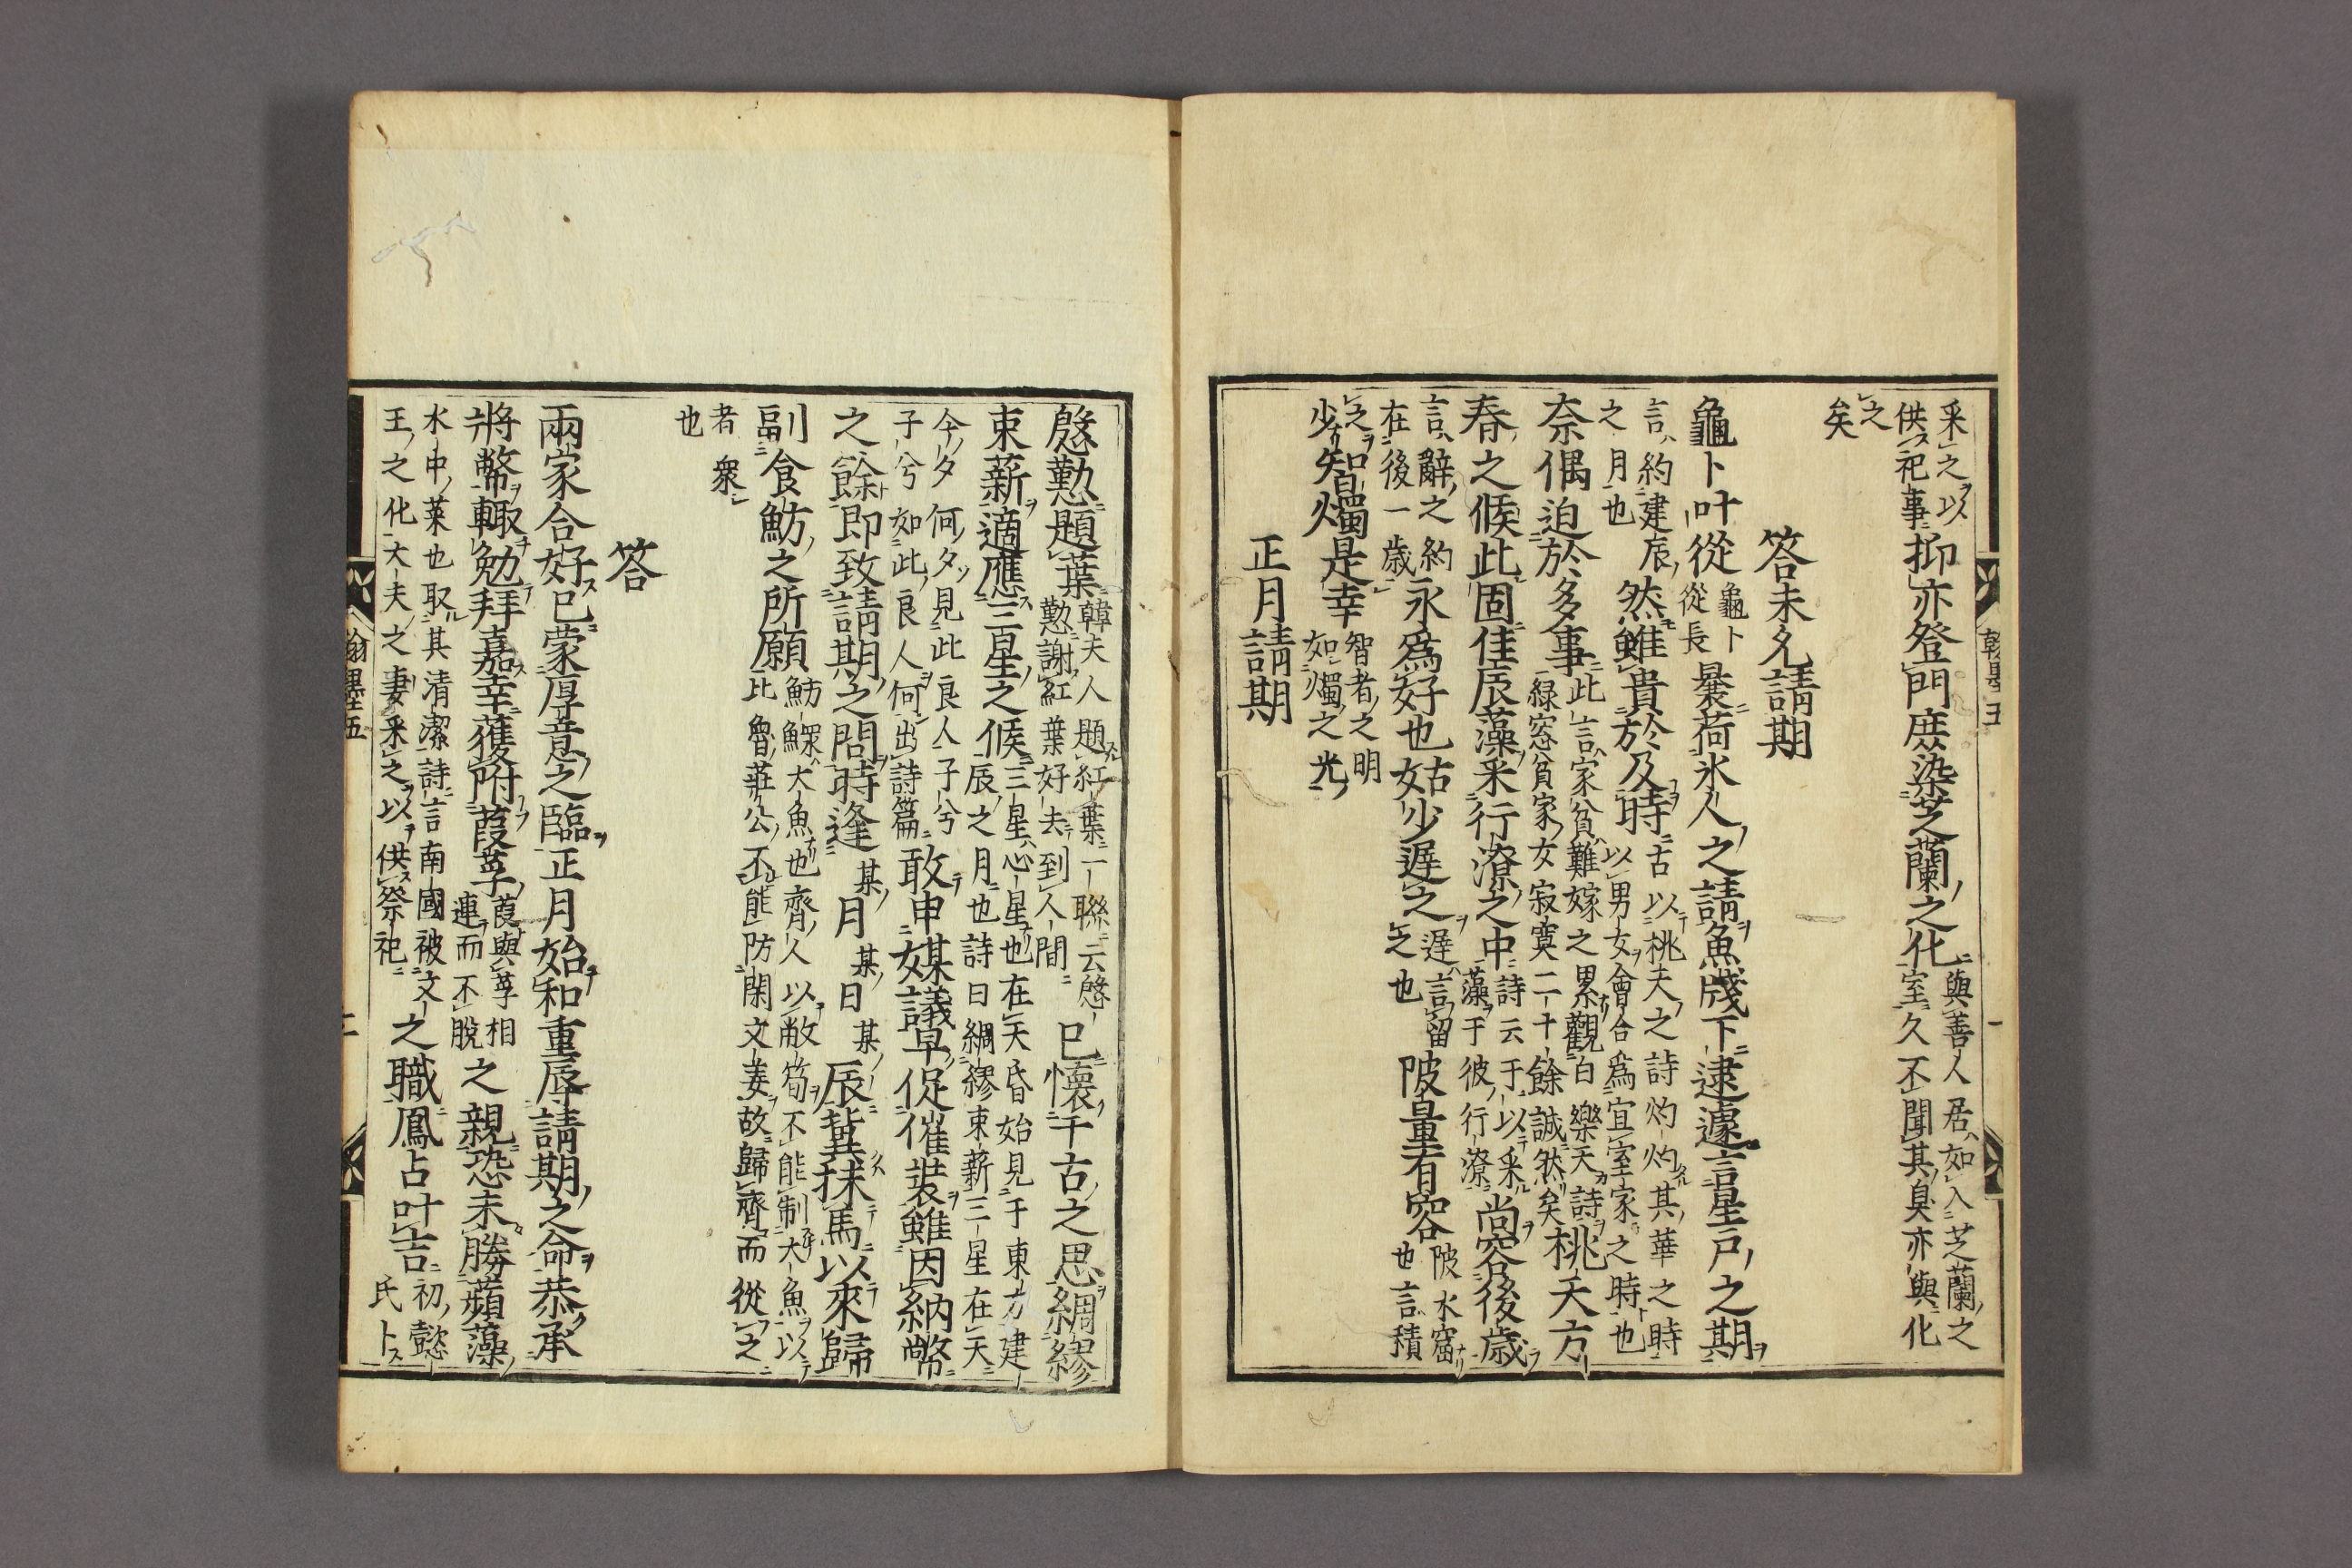 翰墨五
一
采之以
供祀事
抑亦登門庶染芝蘭之化
與善人居如入芝蘭之
室久不聞其臭亦與化
之
矣
答未允請期
龜卜叶從
龜卜
從長
曩荷氷人之請魚牋下逮遽言星戸之期
言約建辰
之月也
然雖貴於及時
古以桃夭之詩灼灼其華之時
以男女會合爲宜室家之時也
奈偶迫於多事
此言家貧難嫁之累觀白樂天詩
緑窓貧家女寂寞二十餘誠然矣
桃夭方
春之候此固佳辰藻采行潦之中
詩云于以采
藻于彼行潦
尚容後歳
言辭之約
在後一歳
永爲好也姑少遅之
遅言留
之也
陂量有容
陂水窩
也言積
之
少
智燭是幸
智者之明
如燭之光
正月請期
慇懃題葉
韓夫人題紅葉一聯云慇
懃謝紅葉好去到人間
已懷千古之思綢繆
束薪適應三星之候
三星心星也在天昏始見于東方建
辰之月也詩曰綢繆束薪三星在天
今夕何夕見此良人子兮
子兮如此良人何出詩篇
敢申媒議早促催裝雖因納幣
之餘即致請期之問時逢某月某日某辰冀秣馬以來歸
副食魴之所願
魴鰥大魚也齊人以敝笱不能制大魚以
比魯莊公不能防閑文姜故歸齊而從之
者衆
也
答
兩家合好已蒙厚意之臨正月始和重辱請期之命恭承
將幣輙勉拜嘉幸獲附葭莩
葭與莩相
連而不脫
之親恐未勝蘋藻
水中菜也取其清潔詩言南國被文
王之化大夫之妻采之以供祭祀
之職鳳占叶吉
初懿
氏卜
翰墨五
二